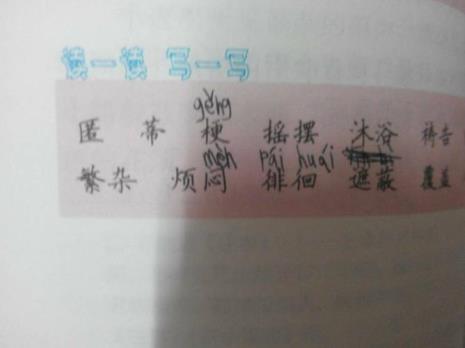 读一读 写一写
gěng
匿 蒂 梗 摇摆 沐浴 祷告
mèn pái huái
繁杂 烦闷 徘徊 遮蔽 覆盖